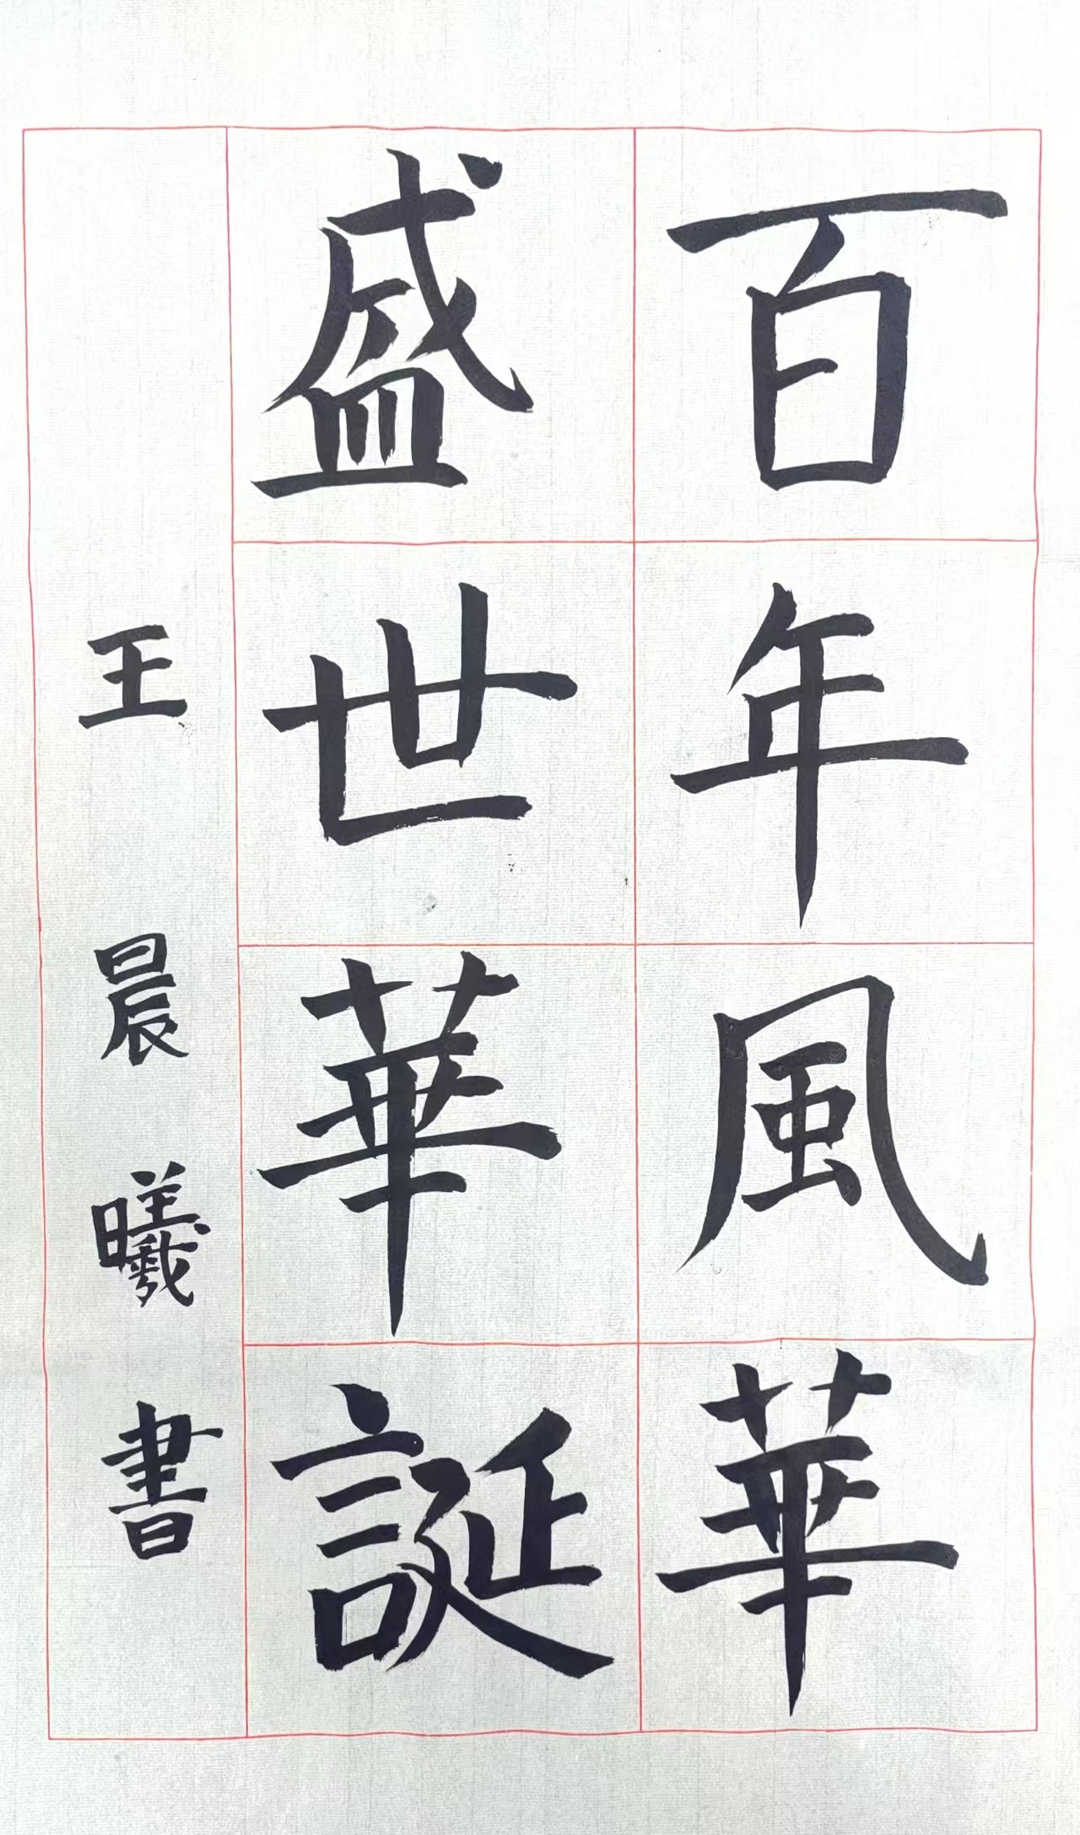 百年風華
盛世華誕
王晨曦書